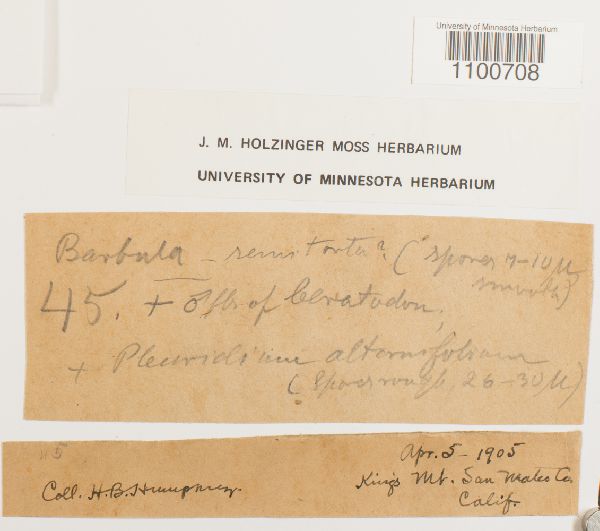 University of Minnesota Herbarium
1100708
J. M. HOLZINGER MOSS HERBARIUM
UNIVERSITY OF MINNESOTA HERBARIUM
Barbula - semitorta? (spores 7-10 µ
smooth)
45. + ♂ fls of Ceratodon,
+ Pleuridium alternifolium
(spores rough, 26-30 µ)
45
Apr. 5 - 1905
Coll. H. B. Humphrey. Kings Mt. San Mateo Co.
Calif.